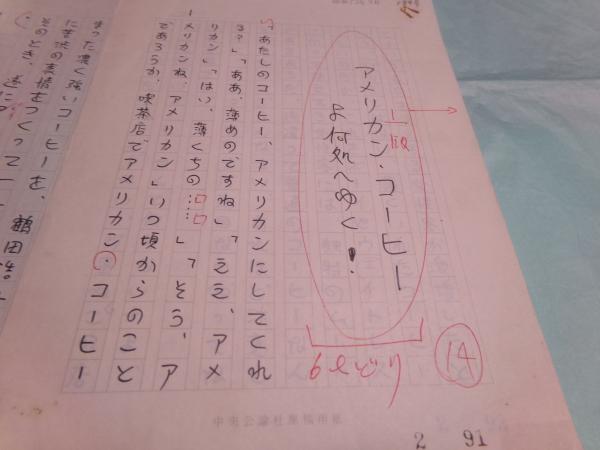 アメリカン・コーヒー
よ何処へゆく!
「あたしのコーヒー、アメリカンにしてくれ
る?」「ああ、薄めのですね」「ええ、アメ
リカン」「はい、薄くちの……」「そう、ア
メリカンね、アメリカン」いつ頃からのこと
であろうか、喫茶店でアメリカン・コーヒー
まった濃く強いコーヒーを、
に苦渋の表情をつくって
そのとき、
鶴田浩
6行どり
14
中央公論社原稿用紙
2 91